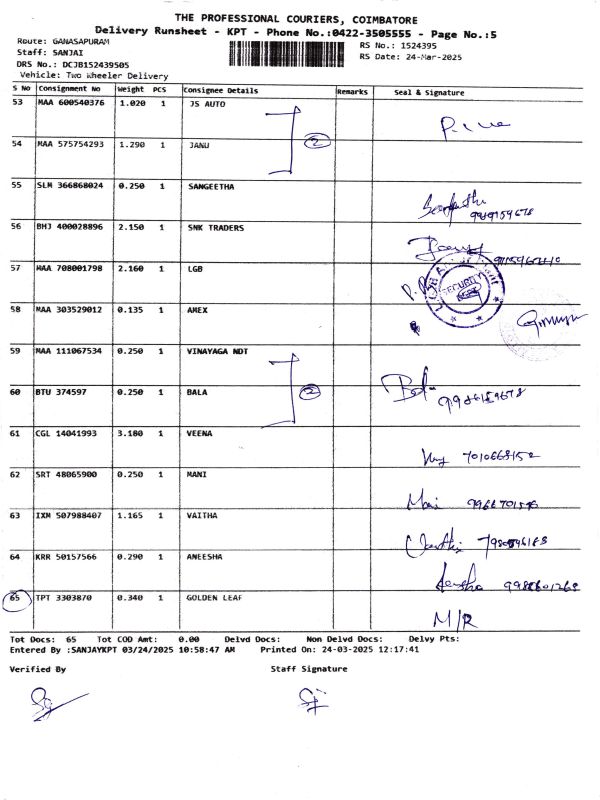 THE PROFESSIONAL COURIERS, COIMBATORE
Delivery Runsheet - KPT - Phone No.:0422-3505555 - Page No.:5
Route: GANASAPURAM
RS No.: 1524395
Staff: SANJAI
RS Date: 24-Mar-2025
DRS No.: DCJB152439505
Vehicle: Two Wheeler Delivery
S No Consignment No Weight PCS Consignee Details Remarks Seal & Signature
53 MAA 600540376 1.020 1 JS AUTO
2
54 MAA 575754293 1.290 1 JANU
55 SLM 366868024 0.250 1 SANGEETHA
56 BHJ 400028896 2.150 1 SNK TRADERS
57 MAA 708001798 2.160 1 LGB
SECURITY
58 MAA 303529012 0.135 1 AMEX
59 MAA 111067534 0.250 1 VINAYAGA NDT
2
60 BTU 374597 0.250 1 BALA
61 CGL 14041993 3.180 1 VEENA
7010668152
62 SRT 48065900 0.250 1 MANI
Mani
63 IXM 507988407 1.165 1 VAITHA
64 KRR 50157566 0.290 1 ANEESHA
65 TPT 3303870 0.340 1 GOLDEN LEAF
M/R
Tot Docs: 65 Tot COD Amt: 0.00 Delvd Docs: Non Delvd Docs: Delvy Pts:
Entered By :SANJAYKPT 03/24/2025 10:58:47 AM Printed On: 24-03-2025 12:17:41
Verified By Staff Signature